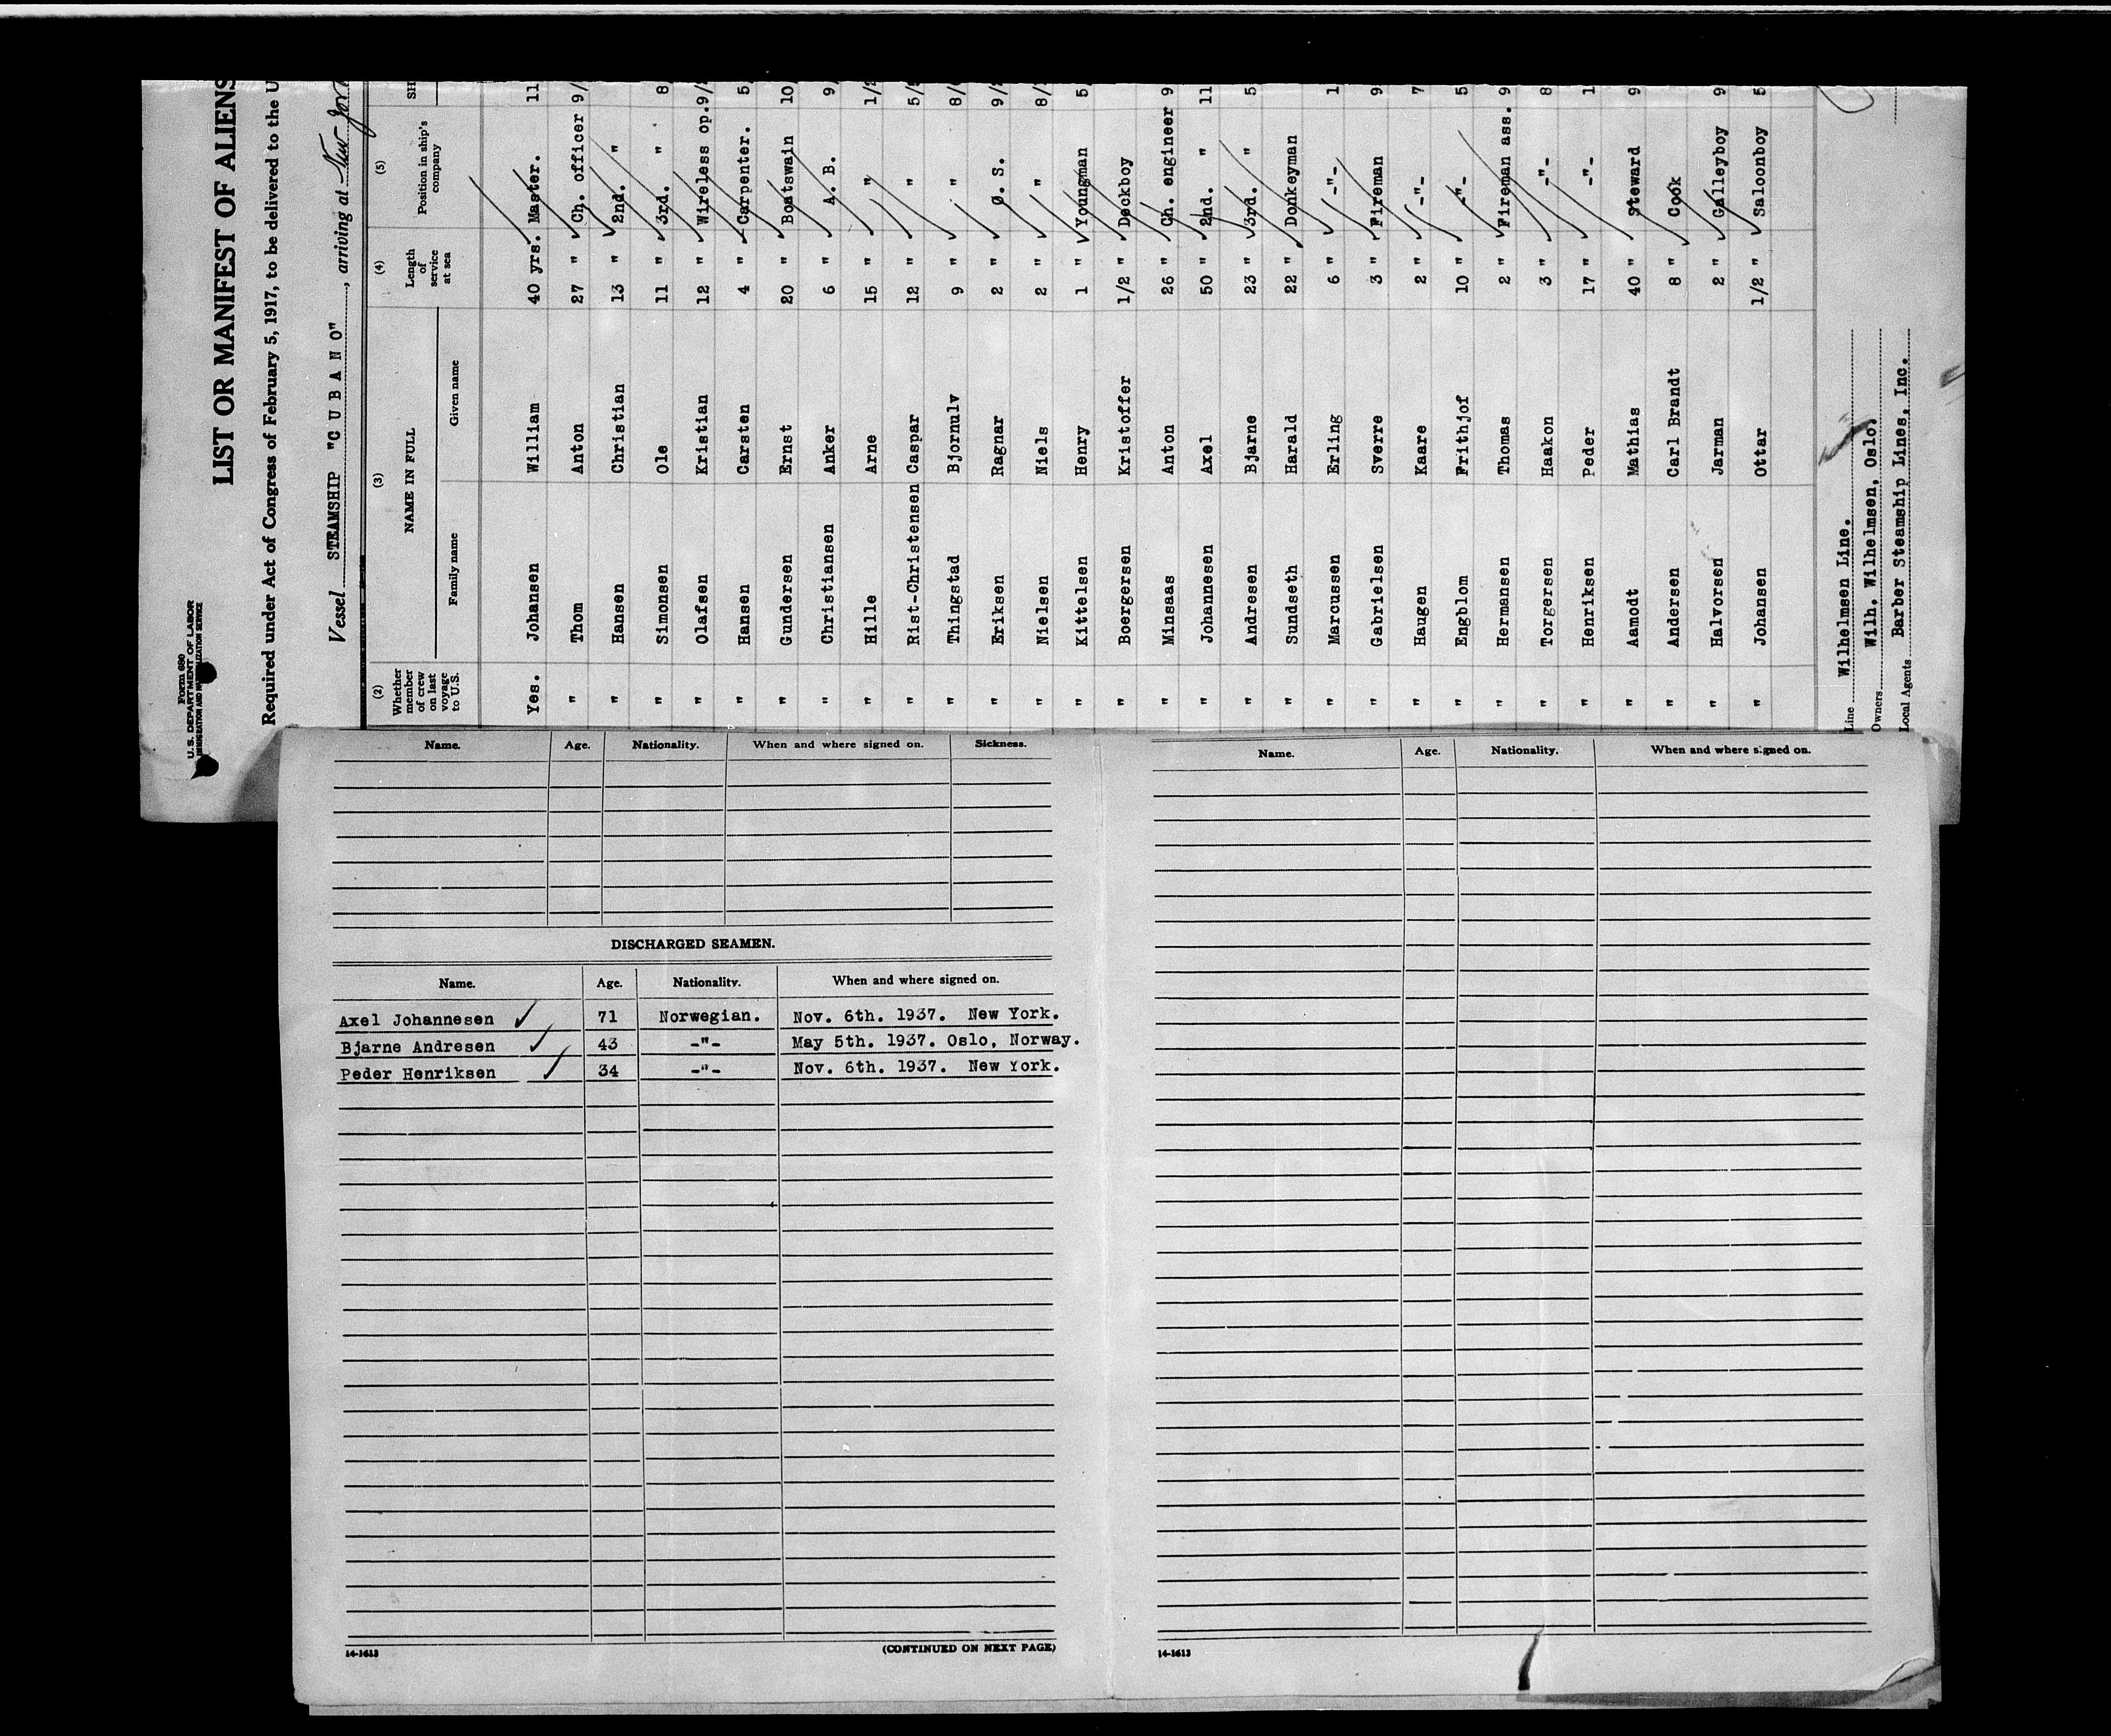 Form 680
U. S. DEPARTMENT OF LABOR
IMMIGRATION AND NATURALIZATION SERVICE
LIST OR MANIFEST OF ALIENS
Required under Act of Congress of February 5, 1917, to be delivered to the U
Vessel STEAMSHIP "C U B A N O", arriving at New York
(2) (3) (4) (5)
Whether member of crew on last voyage to U.S. NAME IN FULL Length of service at sea Position in ship's company SHI
Family name Given name
Yes. Johansen William 40 yrs. Master. 11
" Thom Anton 27 " Ch. officer 9/
" Hansen Christian 13 " 2nd. "
" Simonsen Ole 11 " 3rd. " 8
" Olafsen Kristian 12 " Wireless op. 9/
" Hansen Carsten 4 " Carpenter. 5
" Gundersen Ernst 20 " Boatswain 10
" Christiansen Anker 6 " A. B. 9
" Hille Arne 15 " " 1/2
" Rist-Christensen Caspar 12 " " 5/
" Thingstad Bjornulv 9 " " 8/
" Eriksen Ragnar 2 " O. S. 9/
" Nielsen Niels 2 " " 8/
" Kittelsen Henry 1 " Youngman 5
" Boergersen Kristoffer 1/2 " Deckboy
" Minsaas Anton 26 " Ch. engineer 9
" Johannesen Axel 50 " 2nd. " 11
" Andresen Bjarne 23 " 3rd. " 5
" Sundseth Harald 22 " Donkeyman
" Marcussen Erling 6 " -"- 1
" Gabrielsen Sverre 3 " Fireman 9
" Haugen Kaare 2 " -"- 7
" Engblom Frithjof 10 " -"- 5
" Hermansen Thomas 2 " Fireman ass. 9
" Torgersen Haakon 3 " -"- 8
" Henriksen Peder 17 " -"- 1
" Aamodt Mathias 40 " Steward 9
" Andersen Carl Brandt 8 " Cook
" Halvorsen Jarman 2 " Galleyboy 9
" Johansen Ottar 1/2 " Saloonboy 5
Line Wilhelmsen Line.
Owners Wilh. Wilhelmsen, Oslo.
Local Agents Barber Steamship Lines, Inc.
Name. Age. Nationality. When and where signed on. Sickness.
DISCHARGED SEAMEN.
Name. Age. Nationality. When and where signed on.
Axel Johannesen 71 Norwegian. Nov. 6th. 1937. New York.
Bjarne Andresen 43 -"- May 5th. 1937. Oslo, Norway.
Peder Henriksen 34 -"- Nov. 6th. 1937. New York.
14-1613 (CONTINUED ON NEXT PAGE)
Name. Age. Nationality. When and where signed on.
14-1613